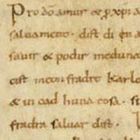 Pro dō amur & p xpīan
saluament. dist dī en a
sauir & podir medunat
cist meon fradre Karlo
& in cad huna cosa. si
fradra saluar dist.